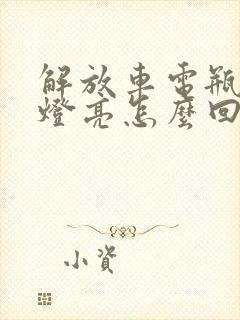 解放車電瓶
燈亮怎麼回
小資